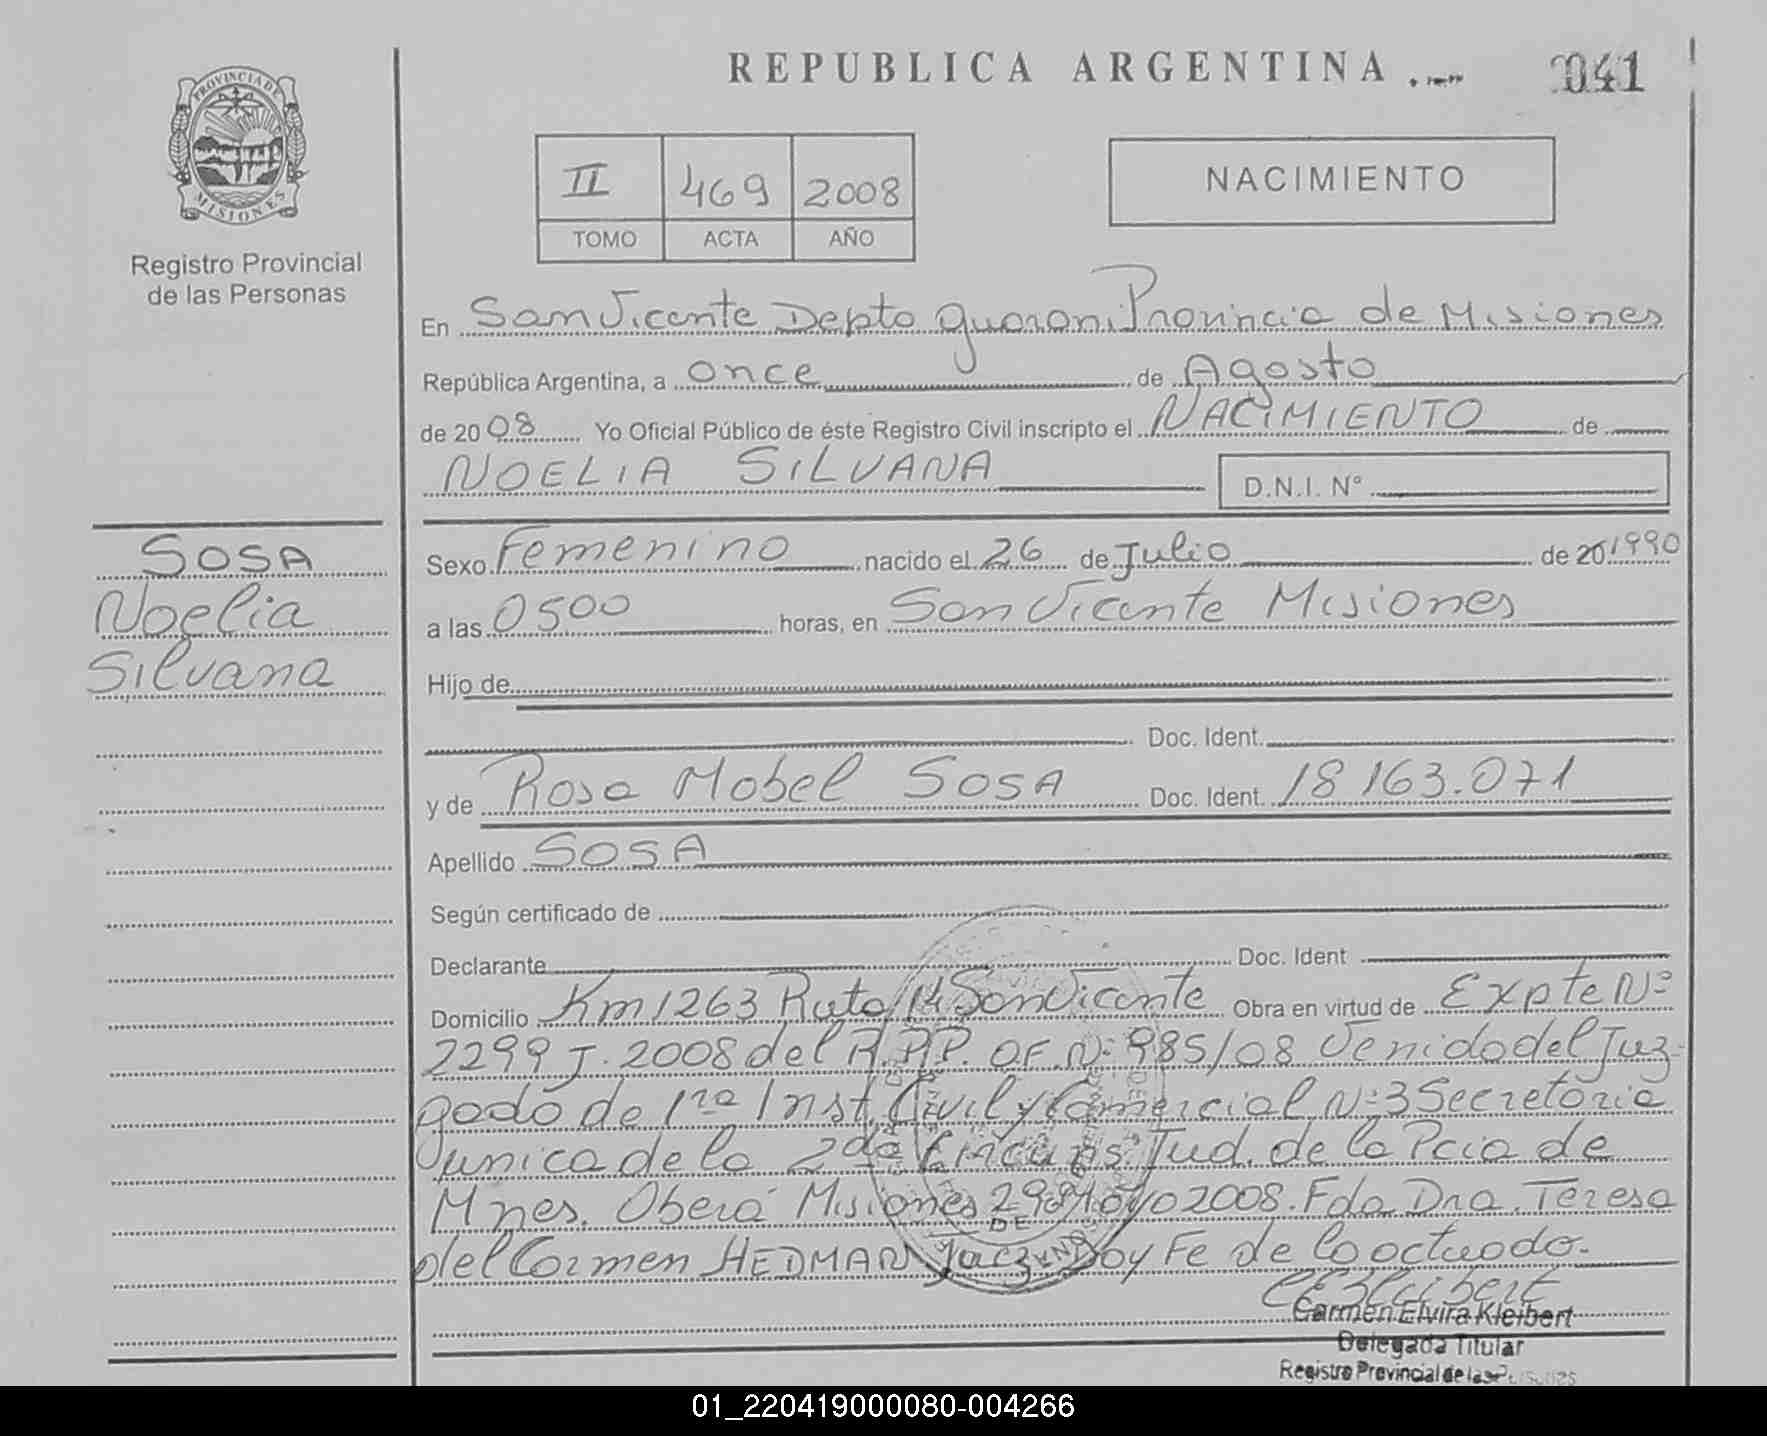 REPUBLICA ARGENTINA
041
PROVINCIA DE
MISIONES
Registro Provincial
de las Personas
II 469 2008
TOMO ACTA AÑO
NACIMIENTO
En San Vicente Depto guarani Provincia de Misiones
República Argentina, a once de Agosto
de 2008 Yo Oficial Público de éste Registro Civil inscripto el NACIMIENTO de
NOELIA SILVANA D.N.I. N°
SOSA
Noelia
Silvana
Sexo Femenino nacido el 26 de Julio de 20 1990
a las 0500 horas, en San Vicente Misiones
Hijo de
Doc. Ident.
y de Rosa Mabel SOSA Doc. Ident. 18 163.071
Apellido SOSA
Según certificado de
Declarante Doc. Ident
Domicilio Km 1263 Ruta 14 San Vicente Obra en virtud de Expte Nº
2299 J. 2008 del R.P.P. OF. Nº 985/08 Venido del Juz-
gado de 1ra Inst. Civil y Comercial Nº 3 Secretaria
unica de la 2da Circuns. Jud. de la Pcia de
Mnes. Oberá Misiones 29 Mayo 2008. Fdo Dra. Teresa
del Carmen HEDMAN Juez. Doy Fe de lo actuado.
Carmen Elvira Kleibert
Delegada Titular
Registro Provincial de las Personas
01_220419000080-004266